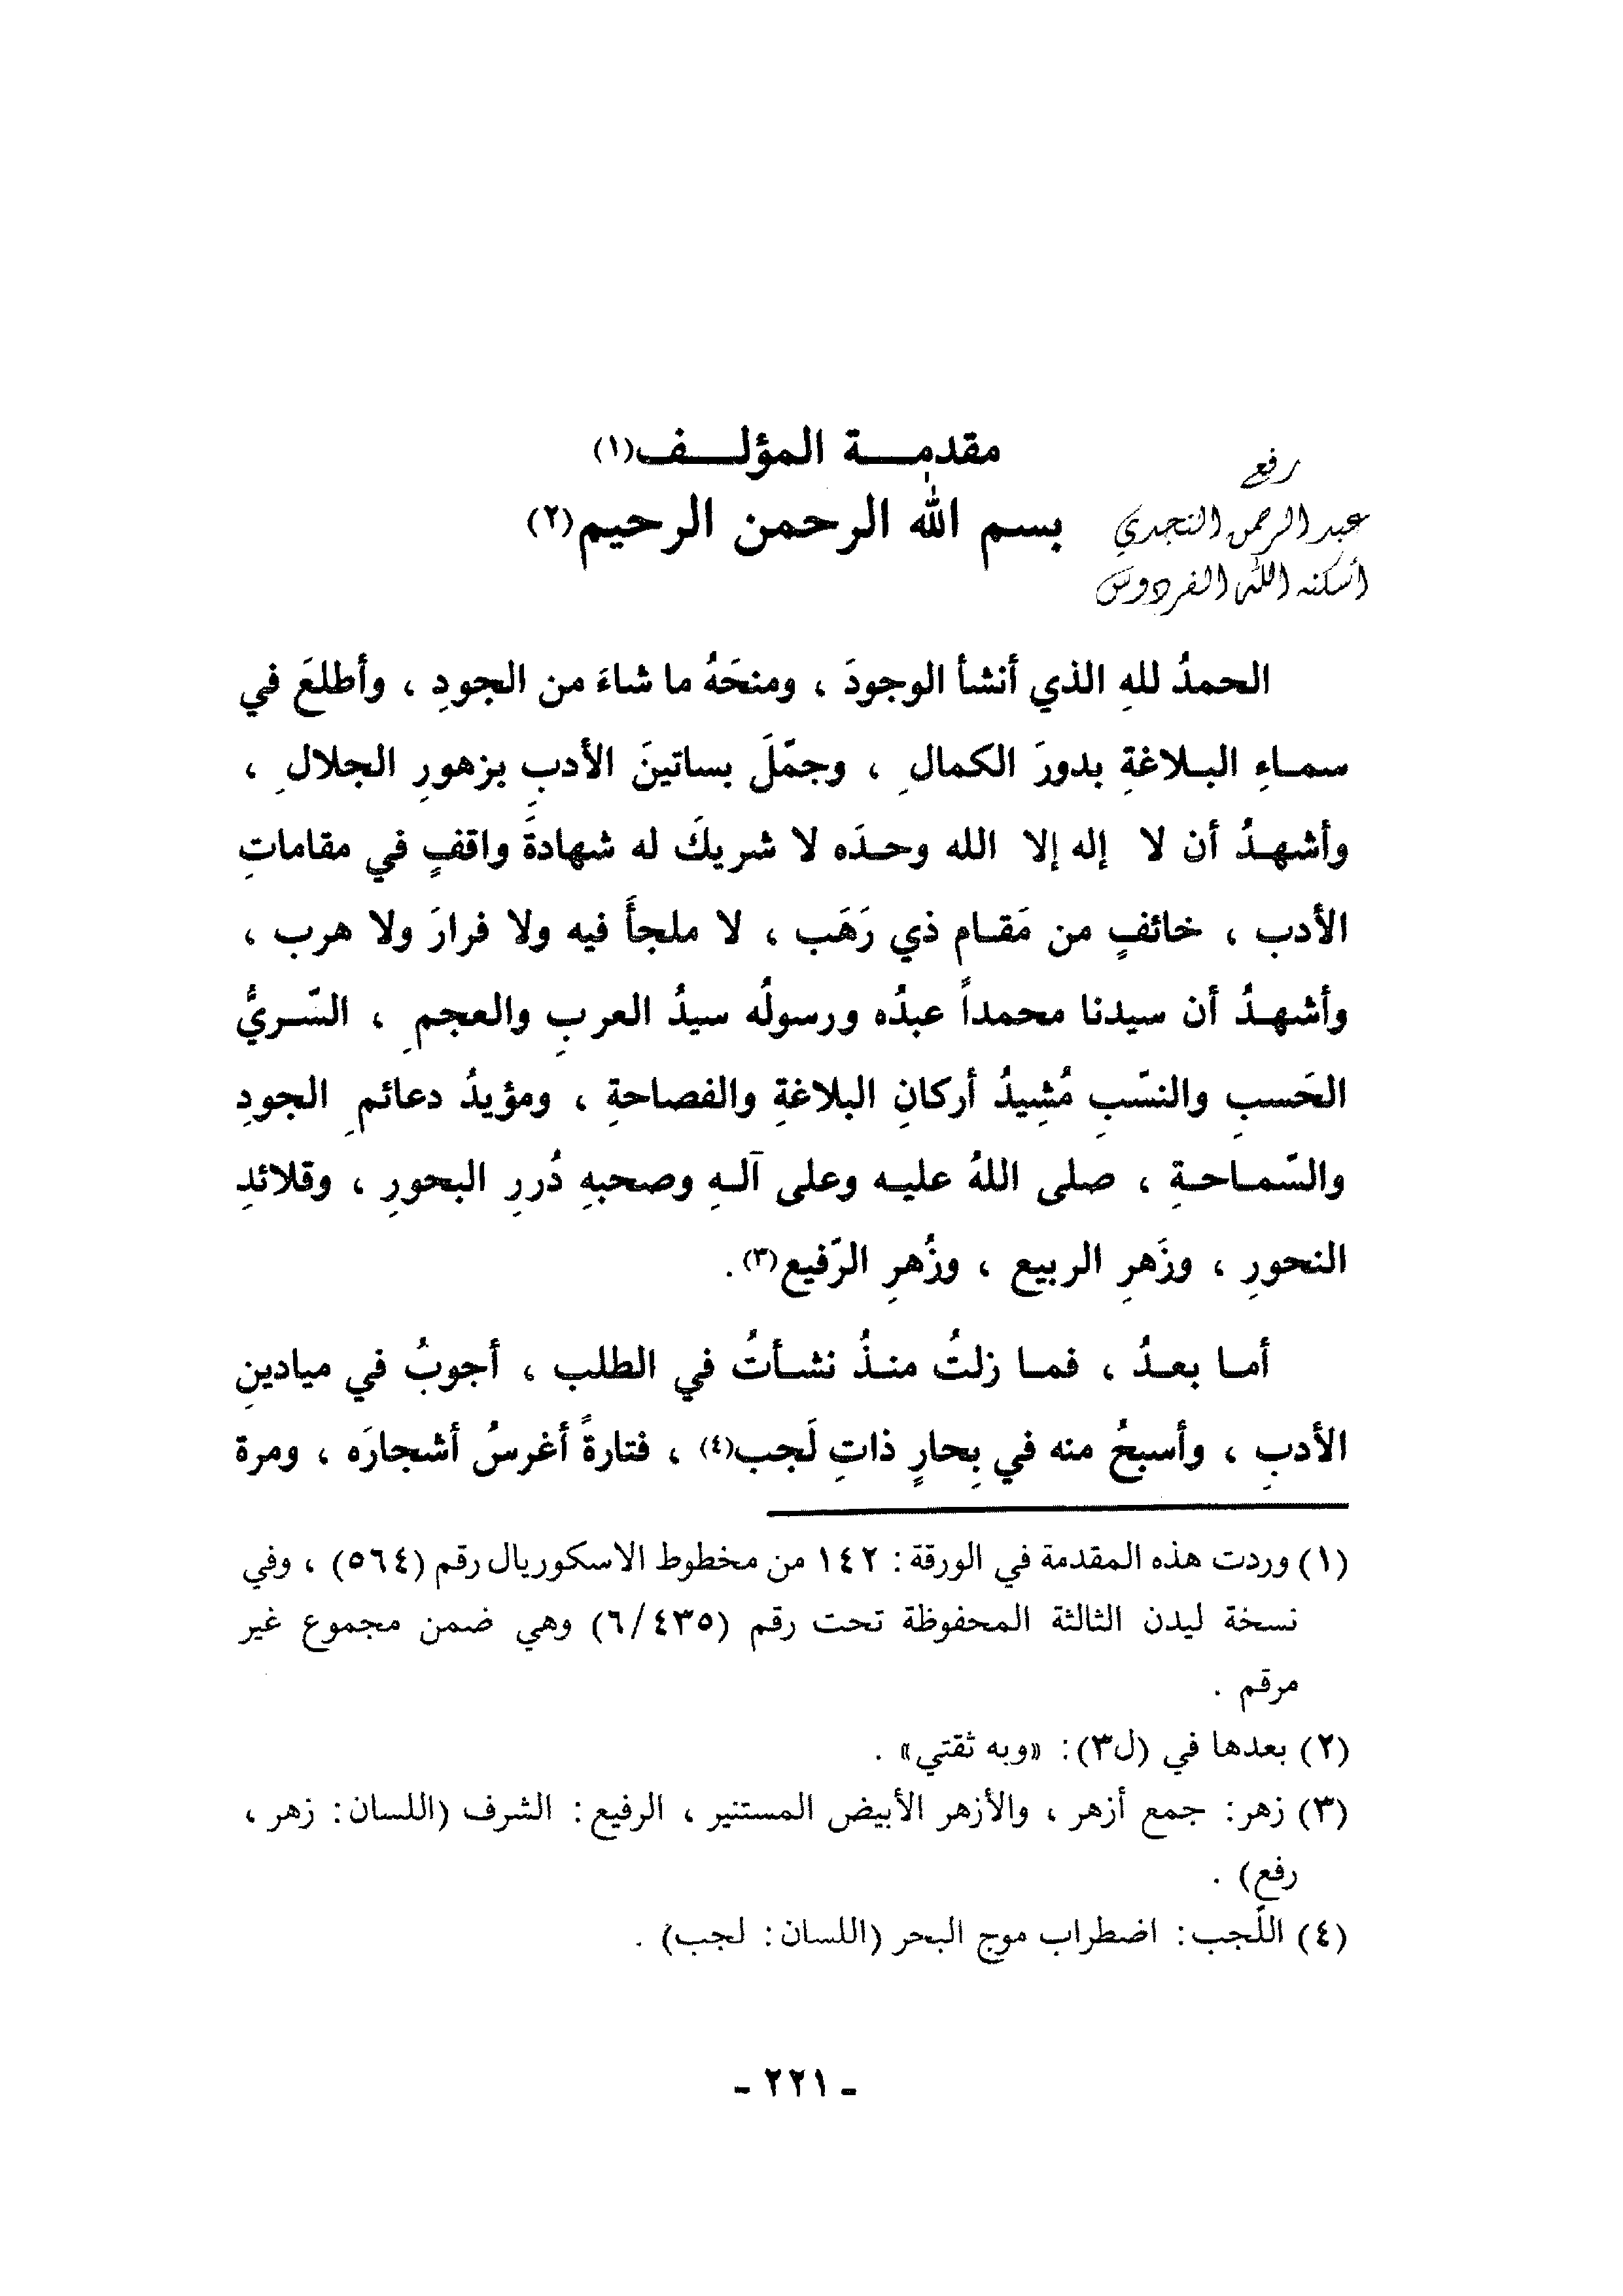 مقدمة المؤلف(١)
رفع
بسم الله الرحمن الرحيم(٢)
عبد الرحمن النجدي
أسكنه الله الفردوس
الحمدُ للهِ الذي أنشأ الوجودَ ، ومنحَهُ ما شاءَ من الجودِ ، وأطلعَ في
سماءِ البلاغةِ بدورَ الكمالِ ، وجمّلَ بساتينَ الأدبِ بزهورِ الجلالِ ،
وأشهدُ أن لا إله إلا الله وحدَه لا شريكَ له شهادةَ واقفٍ في مقاماتِ
الأدب ، خائفٍ من مَقام ذي رَهَب ، لا ملجأَ فيه ولا فرارَ ولا هرب ،
وأشهدُ أن سيدنا محمداً عبدُه ورسولُه سيدُ العربِ والعجمِ ، السّريُّ
الحَسبِ والنسّبِ مُشِيدُ أركانِ البلاغةِ والفصاحةِ ، ومؤيدُ دعائمِ الجودِ
والسّماحةِ ، صلى اللهُ عليه وعلى آلهِ وصحبهِ دُررِ البحورِ ، وقلائدِ
النحورِ ، وزَهرِ الربيع ، وزُهرِ الرّفيع(٣) .
أما بعدُ ، فما زلتُ منذُ نشأتُ في الطلب ، أجوبُ في ميادينِ
الأدبِ ، وأسبحُ منه في بِحارٍ ذاتِ لَجب(٤) ، فتارةً أغرسُ أشجارَه ، ومرة
(١) وردت هذه المقدمة في الورقة: ١٤٢ من مخطوط الاسكوريال رقم (٥٦٤) ، وفي
نسخة ليدن الثالثة المحفوظة تحت رقم (٦/٤٣٥) وهي ضمن مجموع غير
مرقم .
(٢) بعدها في (ل٣): «وبه ثقتي» .
(٣) زهر: جمع أزهر ، والأزهر الأبيض المستنير ، الرفيع: الشرف (اللسان: زهر ،
رفع) .
(٤) اللّجب: اضطراب موج البحر (اللسان: لجب) .
- ٢٢١ -